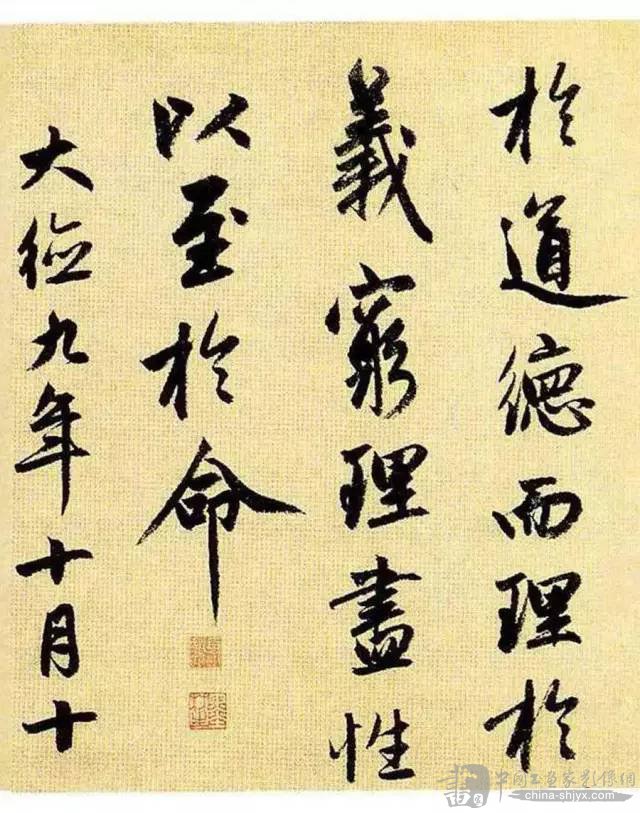 於道德而理於
義窮理盡性
以至於命
大德九年十月十
china-shjyx.com